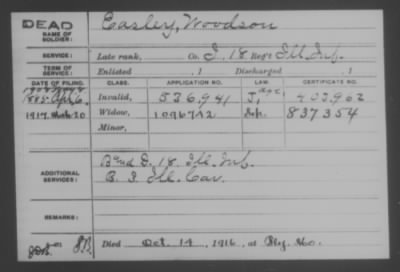 DEAD
NAME OF SOLDIER: Easley, Woodson
SERVICE: Late rank, Co. I, 18 Reg't Ill. Inf.
TERM OF SERVICE: Enlisted , 1 Discharged , 1
DATE OF FILING. CLASS. APPLICATION NO. LAW. CERTIFICATE NO.
1888 Apl 6. Invalid, 536,941 J, Age 403,962
1917 20 Widow, 1096712 Sep. 837354
Minor,
ADDITIONAL SERVICES: Band D. 18. Ill. Inf.
B. 3 Ill. Cav.
REMARKS:
Died Oct. 14, 1916, at Mo.